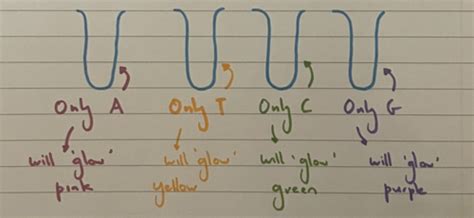 Only A Only T Only C Only G
will 'glow' will 'glow' will 'glow' will 'glow'
pink yellow green purple